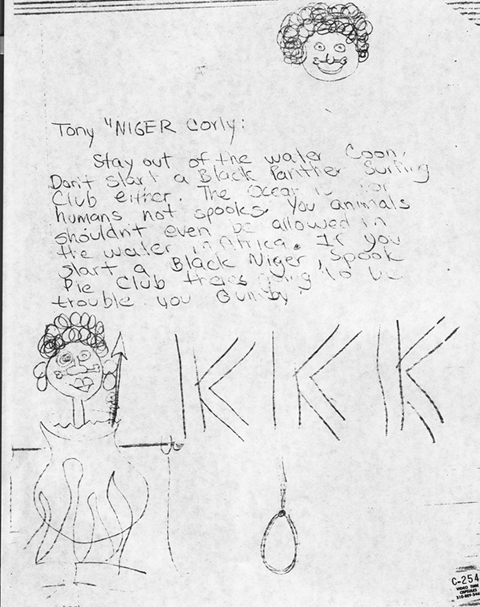 Tony "NIGER Corly:
Stay out of the water Coon.
Dont start a Black Panther Surfing
Club either. The Ocean is for
humans not spooks. You animals
shouldnt even be allowed in
the water in Africa. If you
start a Black Niger, Spook
Pie Club theirs going to be
trouble you Gumby.
KKK
C-254